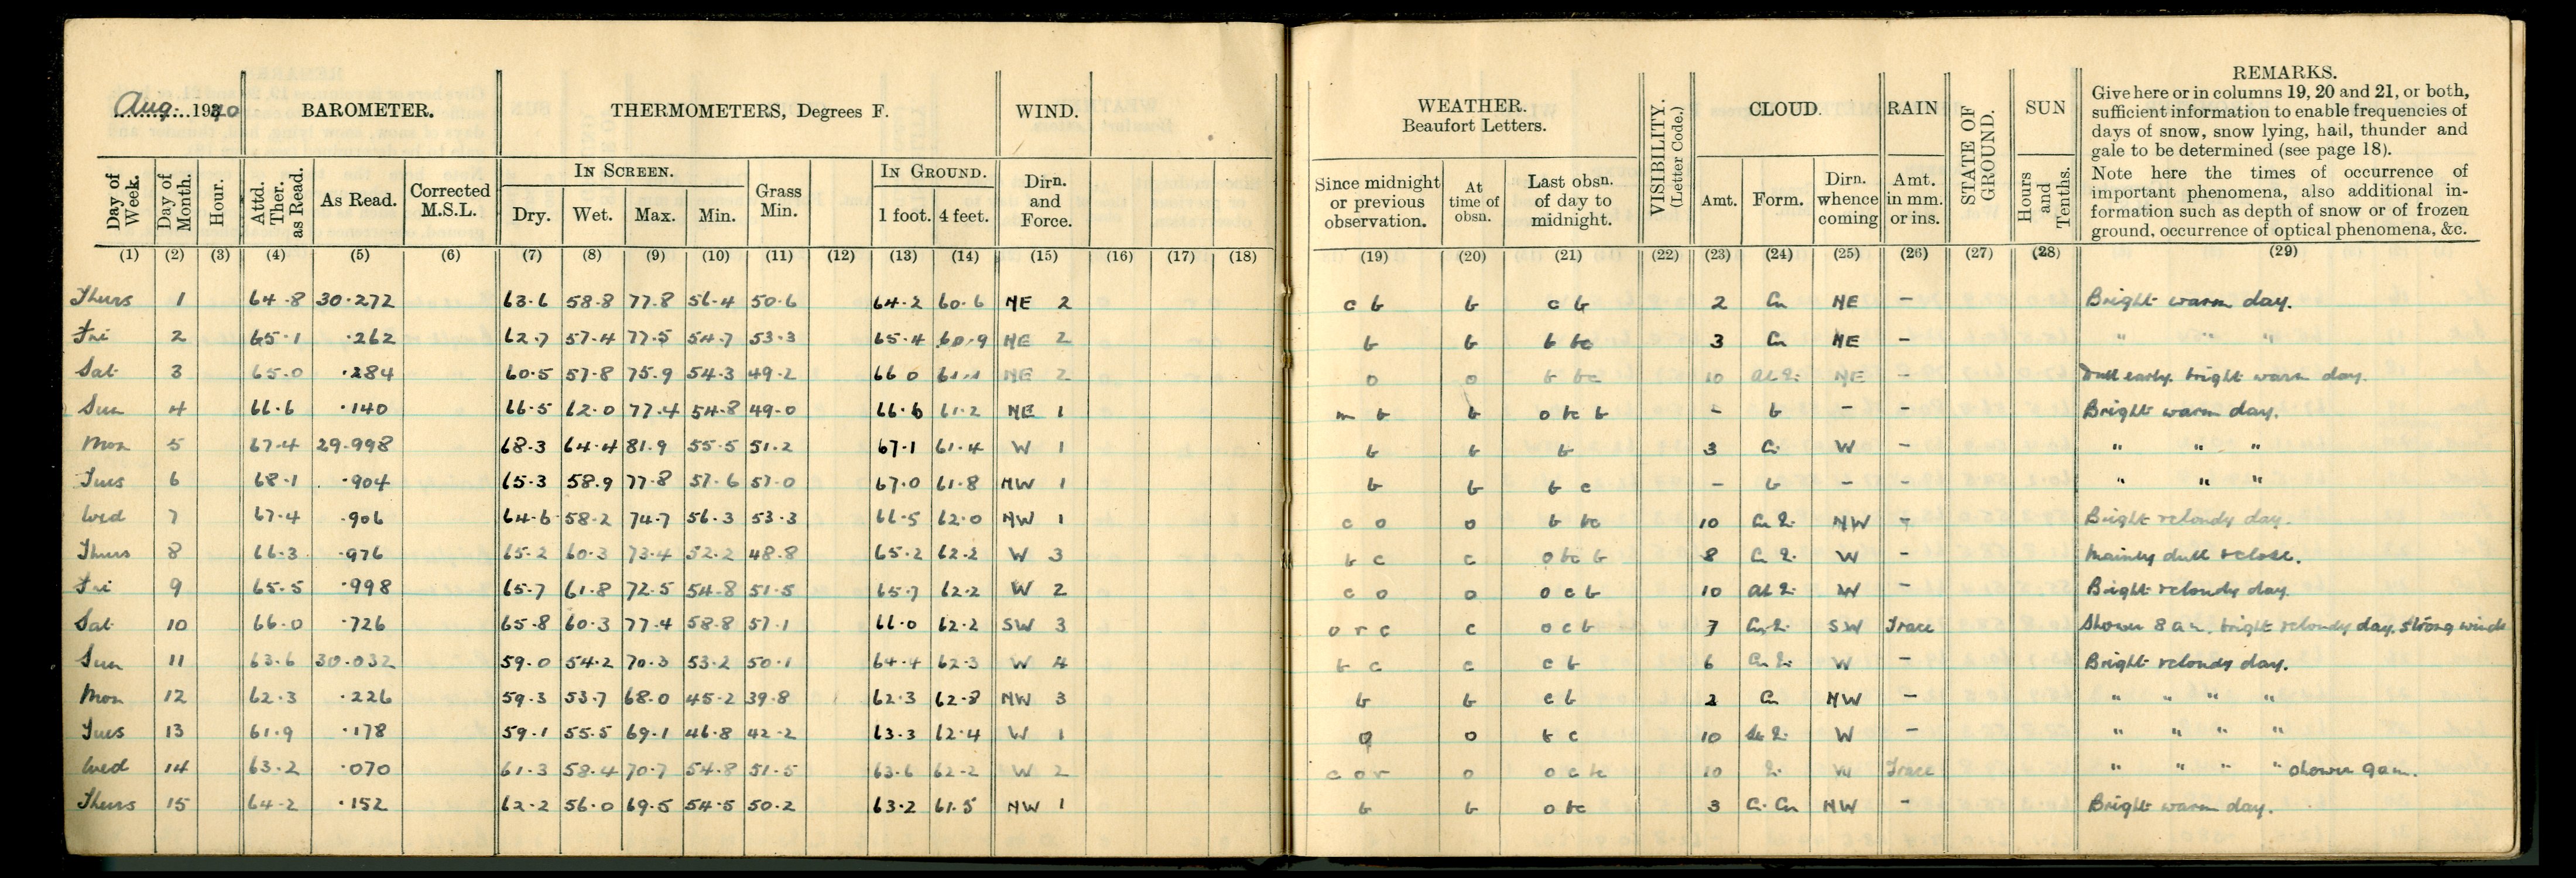 Aug. 1940 BAROMETER. THERMOMETERS, Degrees F. WIND.
Day of Week. Day of Month. Hour. Attd. Ther. as Read. As Read. Corrected M.S.L. IN SCREEN. Dry. Wet. Max. Min. Grass Min. IN GROUND. 1 foot. 4 feet. Dirn. and Force.
(1) (2) (3) (4) (5) (6) (7) (8) (9) (10) (11) (12) (13) (14) (15) (16) (17) (18)
Thurs 1 64.8 30.272 63.6 58.8 77.8 56.4 50.6 64.2 60.6 NE 2
Fri 2 65.1 .262 62.7 57.4 77.5 54.7 53.3 65.4 60.9 NE 2
Sat 3 65.0 .284 60.5 57.8 75.9 54.3 49.2 66 0 NE 2
Sun 4 66.6 .140 66.5 62.0 77.4 54.8 49.0 66.6 61.2 NE 1
Mon 5 67.4 29.998 68.3 64.4 81.9 55.5 51.2 67.1 61.4 W 1
Tues 6 68.1 .904 65.3 58.9 77.8 57.6 57.0 67.0 61.8 NW 1
Wed 7 67.4 .906 64.6 58.2 74.7 56.3 53.3 66.5 62.0 NW 1
Thurs 8 66.3 .976 65.2 60.3 73.4 52.2 48.8 65.2 62.2 W 3
Fri 9 65.5 .998 65.7 61.8 72.5 54.8 51.5 65.7 62.2 W 2
Sat 10 66.0 .726 65.8 60.3 77.4 58.8 57.1 66.0 62.2 SW 3
Sun 11 63.6 30.032 59.0 54.2 70.3 53.2 50.1 64.4 62.3 W 4
Mon 12 62.3 .226 59.3 53.7 68.0 45.2 39.8 62.3 62.8 NW 3
Tues 13 61.9 .178 59.1 55.5 69.1 46.8 42.2 63.3 62.4 W 1
Wed 14 63.2 .070 61.3 58.4 70.7 54.8 51.5 63.6 62.2 W 2
Thurs 15 64.2 .152 62.2 56.0 69.5 54.5 50.2 63.2 61.5 NW 1
WEATHER. Beaufort Letters. VISIBILITY. (Letter Code.) CLOUD. RAIN STATE OF GROUND. SUN REMARKS.
Since midnight or previous observation. At time of obsn. Last obsn. of day to midnight. Amt. Form. Dirn. whence coming Amt. in mm. or ins. Hours and Tenths.
Give here or in columns 19, 20 and 21, or both,
sufficient information to enable frequencies of
days of snow, snow lying, hail, thunder and
gale to be determined (see page 18).
Note here the times of occurrence of
important phenomena, also additional in-
formation such as depth of snow or of frozen
ground, occurrence of optical phenomena, &c.
(19) (20) (21) (22) (23) (24) (25) (26) (27) (28) (29)
c b b c b 2 Cu NE - Bright warm day.
b b b bc 3 Cu NE - " " "
o o b bc 10 NE - Dull early. bright warm day.
m b b o bc b - b - - Bright warm day.
b b b 3 Ci W - " " "
b b b c - b - - " " "
c o o b bc 10 NW - Bright & cloudy day.
b c c o bc b 8 W - Mainly dull & close.
c o o o c b 10 W - Bright & cloudy day.
o r c c o c b 7 SW Trace Shower 8 am. bright & cloudy day. strong winds
b c c c b 6 W - Bright & cloudy day.
b b c b 2 Cu NW - " " " "
o o b c 10 W - " " " "
c o r o o c bc 10 W Trace " " " " shower 9am.
b b o bc 3 Ci Cu NW - Bright warm day.